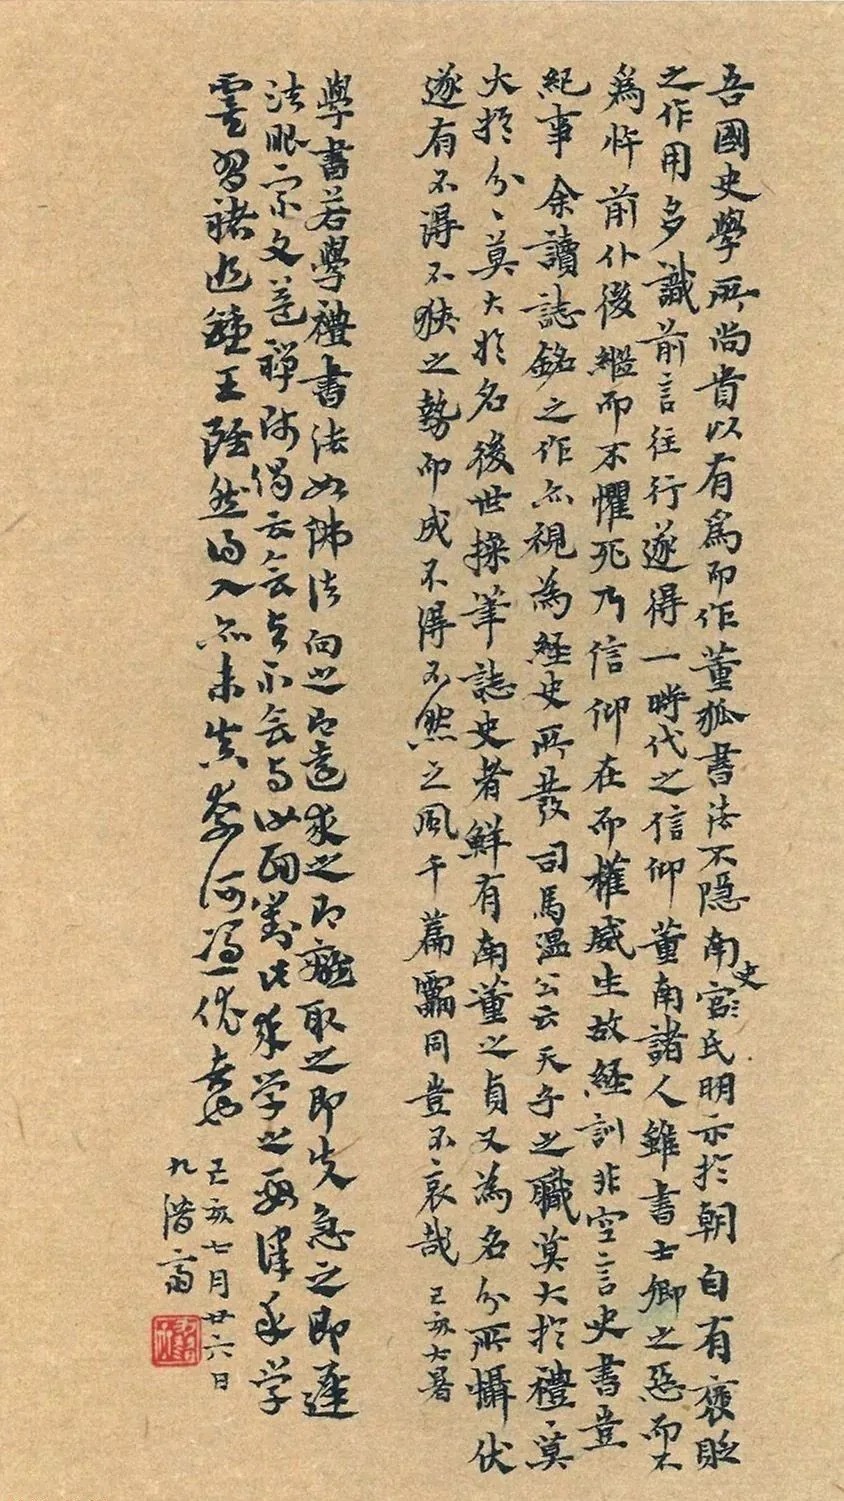 吾國史學所尚貴以有為而作董狐書法不隱南史宮氏明示於朝自有褒貶
之作用多識前言往行遂得一時代之信仰董南諸人雖書士卿之惡而不
為忤前仆後繼而不懼死乃信仰在而權威生故經訓非空言史書豈
紀事余讀誌銘之作亦視為經史所發司馬溫公云天子之職莫大於禮、莫
大於分、莫大於名後世操筆誌史者鮮有南董之貞又為名分所懾伏
遂有不得不狹之勢而成不得不然之風千篇雷同豈不哀哉 己亥大暑
學書若學禮書法如佛法向之即遠求之即離取之即失急之即遲
法眼宗文益禪師偈云會與不會與汝面對 求學之要津 學
習褚追鍾王 然得入亦未 奈何
己亥七月廿六日
九潛齋